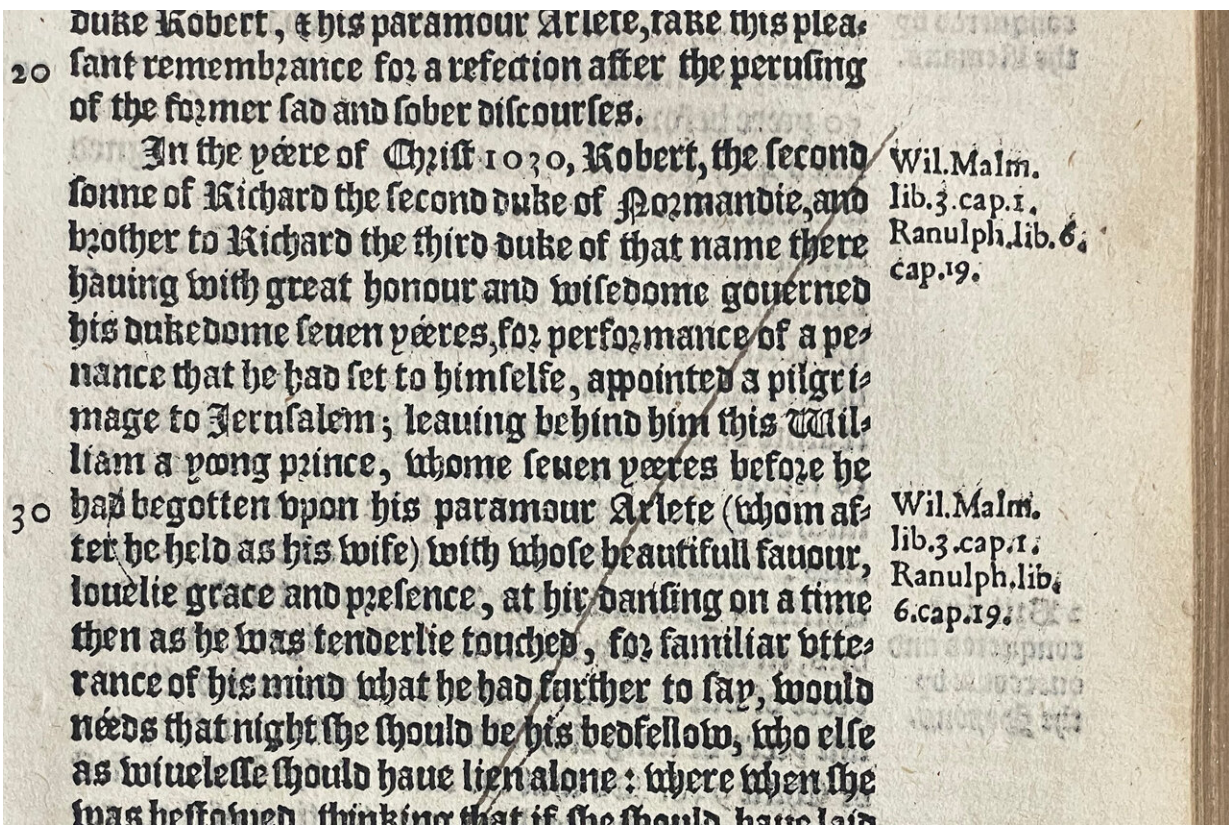 duke Robert, & his paramour Arlete, take this plea-
20 ſant remembrance for a refection after the peruſing
of the former ſad and ſober diſcourſes.
In the yéere of Chriſt 1030, Robert, the ſecond
ſonne of Richard the ſecond duke of Normandie, and
brother to Richard the third duke of that name there
hauing with great honour and wiſedome gouerned
his dukedome ſeuen yéeres, for performance of a pe-
nance that he had ſet to himſelfe, appointed a pilgri-
mage to Jeruſalem; leauing behind him this Wil-
liam a yoong prince, whome ſeuen yeeres before he
30 had begotten vpon his paramour Arlete (whom af-
ter he held as his wife) with whoſe beautifull fauour,
louelie grace and preſence, at hir danſing on a time
then as he was tenderlie touched, for familiar vtte-
rance of his mind what he had further to ſay, would
néeds that night ſhe ſhould be his bedfellow, who elſe
as wiueleſſe ſhould haue lien alone: where when ſhe
was beſtowed, thinking that if ſhe ſhould haue laid
Wil.Malm.
lib.3.cap.1.
Ranulph.lib.6.
cap.19.
Wil.Malm.
lib.3.cap.1.
Ranulph.lib.
6.cap.19.